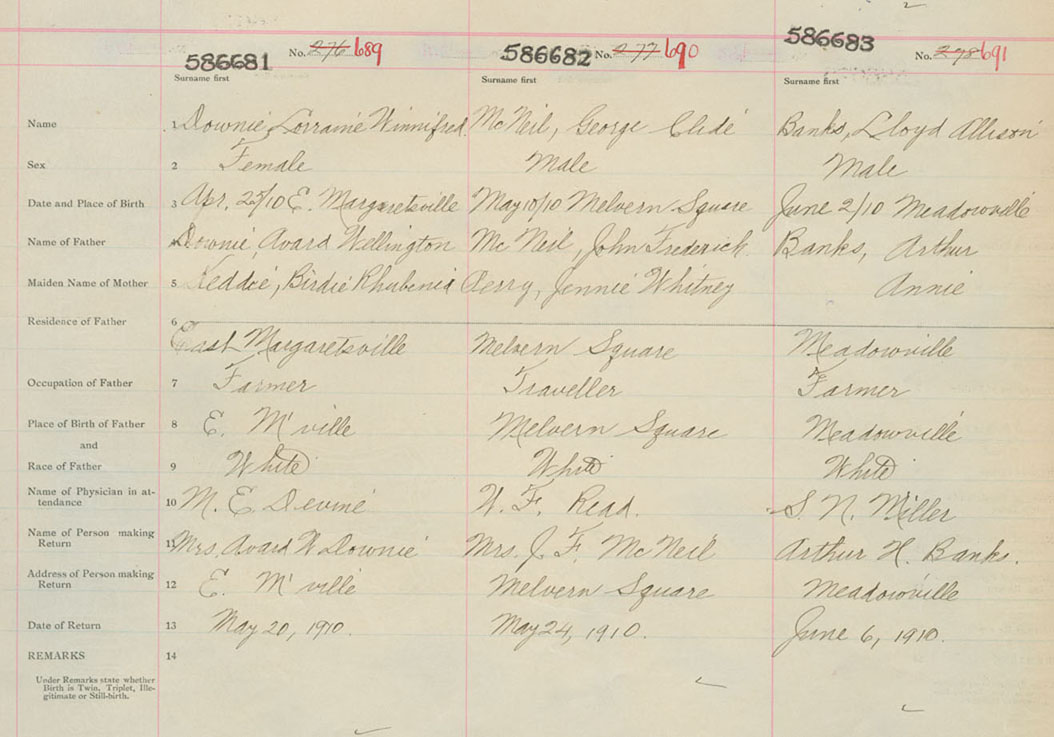 586681 No. 276 689 586682 No. 277 690 586683 No. 278 691
Surname first Surname first Surname first
Name 1 Downie, Lorraine Winnifred McNeil, George Clide Banks, Lloyd Allison
Sex 2 Female Male Male
Date and Place of Birth 3 Apr. 25/10 E. Margaretsville May 10/10 Melvern Square June 2/10 Meadowville
Name of Father 4 Downie, Avard Wellington McNeil, John Frederick Banks, Arthur
Maiden Name of Mother 5 Keddie, Birdie Rhubenia Perry, Jennie Whitney Annie
Residence of Father 6
East Margaretsville Melvern Square Meadowville
Occupation of Father 7 Farmer Traveller Farmer
Place of Birth of Father 8 E. M'ville Melvern Square Meadowville
and
Race of Father 9 White White White
Name of Physician in at-
tendance 10 M. E Devine W. F. Read. S. N. Miller
Name of Person making
Return 11 Mrs. Avard W Downie Mrs. J. F. McNeil Arthur H. Banks.
Address of Person making
Return 12 E. M'ville Melvern Square Meadowville
Date of Return 13 May 20, 1910. May 24, 1910. June 6, 1910.
REMARKS 14
Under Remarks state whether
Birth is Twin, Triplet, Ille-
gitimate or Still-birth.